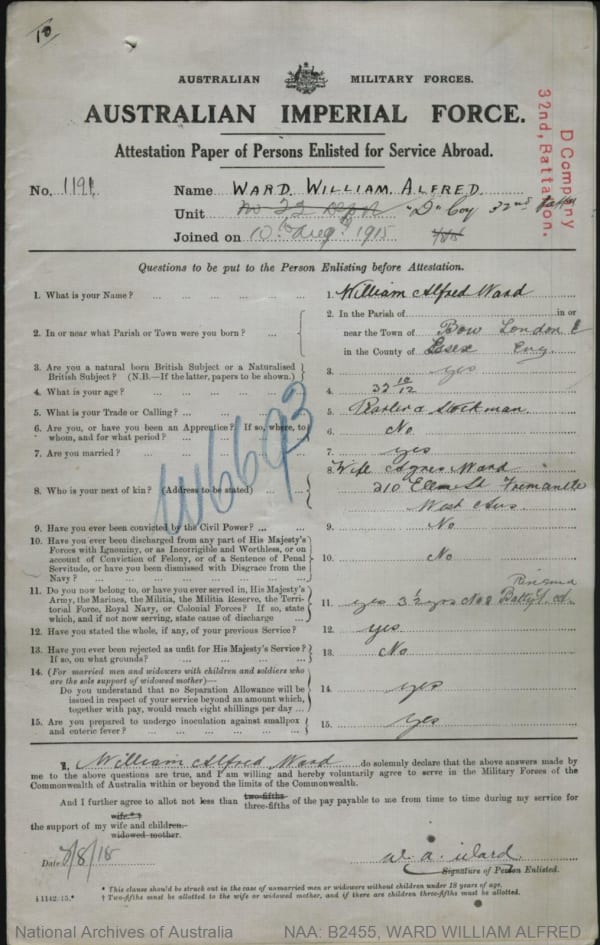 10
AUSTRALIAN MILITARY FORCES.
AUSTRALIAN IMPERIAL FORCE.
Attestation Paper of Persons Enlisted for Service Abroad.
D Company
32nd, Battalion.
No. 1191. Name WARD. WILLIAM. ALFRED.
Unit No 22 Depot "D" Coy 32nd
Joined on 10th Aug. 1915
Questions to be put to the Person Enlisting before Attestation.
1. What is your Name? ... ... ... ... 1. William Alfred Ward
2. In or near what Parish or Town were you born? ... 2. In the Parish of in or
near the Town of Bow London E
in the County of Essex Eng.
3. Are you a natural born British Subject or a Naturalised
British Subject? (N.B.—If the latter, papers to be shown.) 3. yes
4. What is your age? ... 4. 32 10/12
5. What is your Trade or Calling? ... 5. Stockman.
6. Are you, or have you been an Apprentice? If so, where, to
whom, and for what period? ... 6. No
7. Are you married? ... 7. yes
8. Who is your next of kin? (Address to be stated) ... 8. Wife Agnes Ward
210 Ellen St Fremantle
West Aus
W6693
9. Have you ever been convicted by the Civil Power? ... 9. No
10. Have you ever been discharged from any part of His Majesty's
Forces with Ignominy, or as Incorrigible and Worthless, or on
account of Conviction of Felony, or of a Sentence of Penal
Servitude, or have you been Dismissed with Disgrace from the
Navy? ... 10. No
11. Do you now belong to, or have you ever served in, His Majesty's
Army, the Marines, the Militia, the Militia Reserve, the Terri-
torial Force, Royal Navy, or Colonial Forces? If so, state
which, and if not now serving, state cause of discharge 11. yes 3 1/2 yrs No 2 Batty
12. Have you stated the whole, if any, of your previous Service? 12. yes
13. Have you ever been rejected as unfit for His Majesty's Service?
If so, on what grounds? ... 13. No
14. (For married men and widowers with children and soldiers who
are the sole support of widowed mother)—
Do you understand that no Separation Allowance will be
issued in respect of your service beyond an amount which,
together with pay, would reach eight shillings per day ... 14. yes
15. Are you prepared to undergo inoculation against smallpox
and enteric fever? ... 15. Yes
I, William Alfred Ward do solemnly declare that the above answers made by
me to the above questions are true, and I am willing and hereby voluntarily agree to serve in the Military Forces of the
Commonwealth of Australia within or beyond the limits of the Commonwealth.
And I further agree to allot not less than two-fifths
three-fifths of the pay payable to me from time to time during my service for
wife* †
the support of my wife and children.
widowed mother.
Date 7/8/15 W. A. Ward.
Signature of Person Enlisted.
* This clause should be struck out in the case of unmarried men or widowers without children under 18 years of age.
† Two-fifths must be allotted to the wife or widowed mother, and if there are children three-fifths must be allotted.
National Archives of Australia NAA: B2455, WARD WILLIAM ALFRED